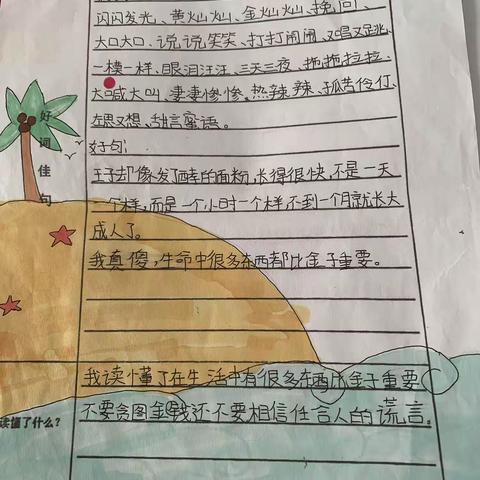 闪闪发光、黄灿灿、金灿灿、挽回、
大口大口、说说笑笑、打打闹闹、又唱又跳、
一模一样、眼泪汪汪、三天三夜、拖拖拉拉、
大喊大叫、凄凄惨惨、热辣辣、孤苦伶仃、
左思又想、甜言蜜语。
好词佳句
好句:
王子却像发了酵的面粉,长得很快,不是一天
一个样,而是一个小时一个样,不到一个月就长大
成人了。
我真傻,生命中很多东西都比金子重要。
我读懂了在生活中有很多东西比金子重要
不要贪图金钱还不要相信任言人的谎言。
读懂了什么?